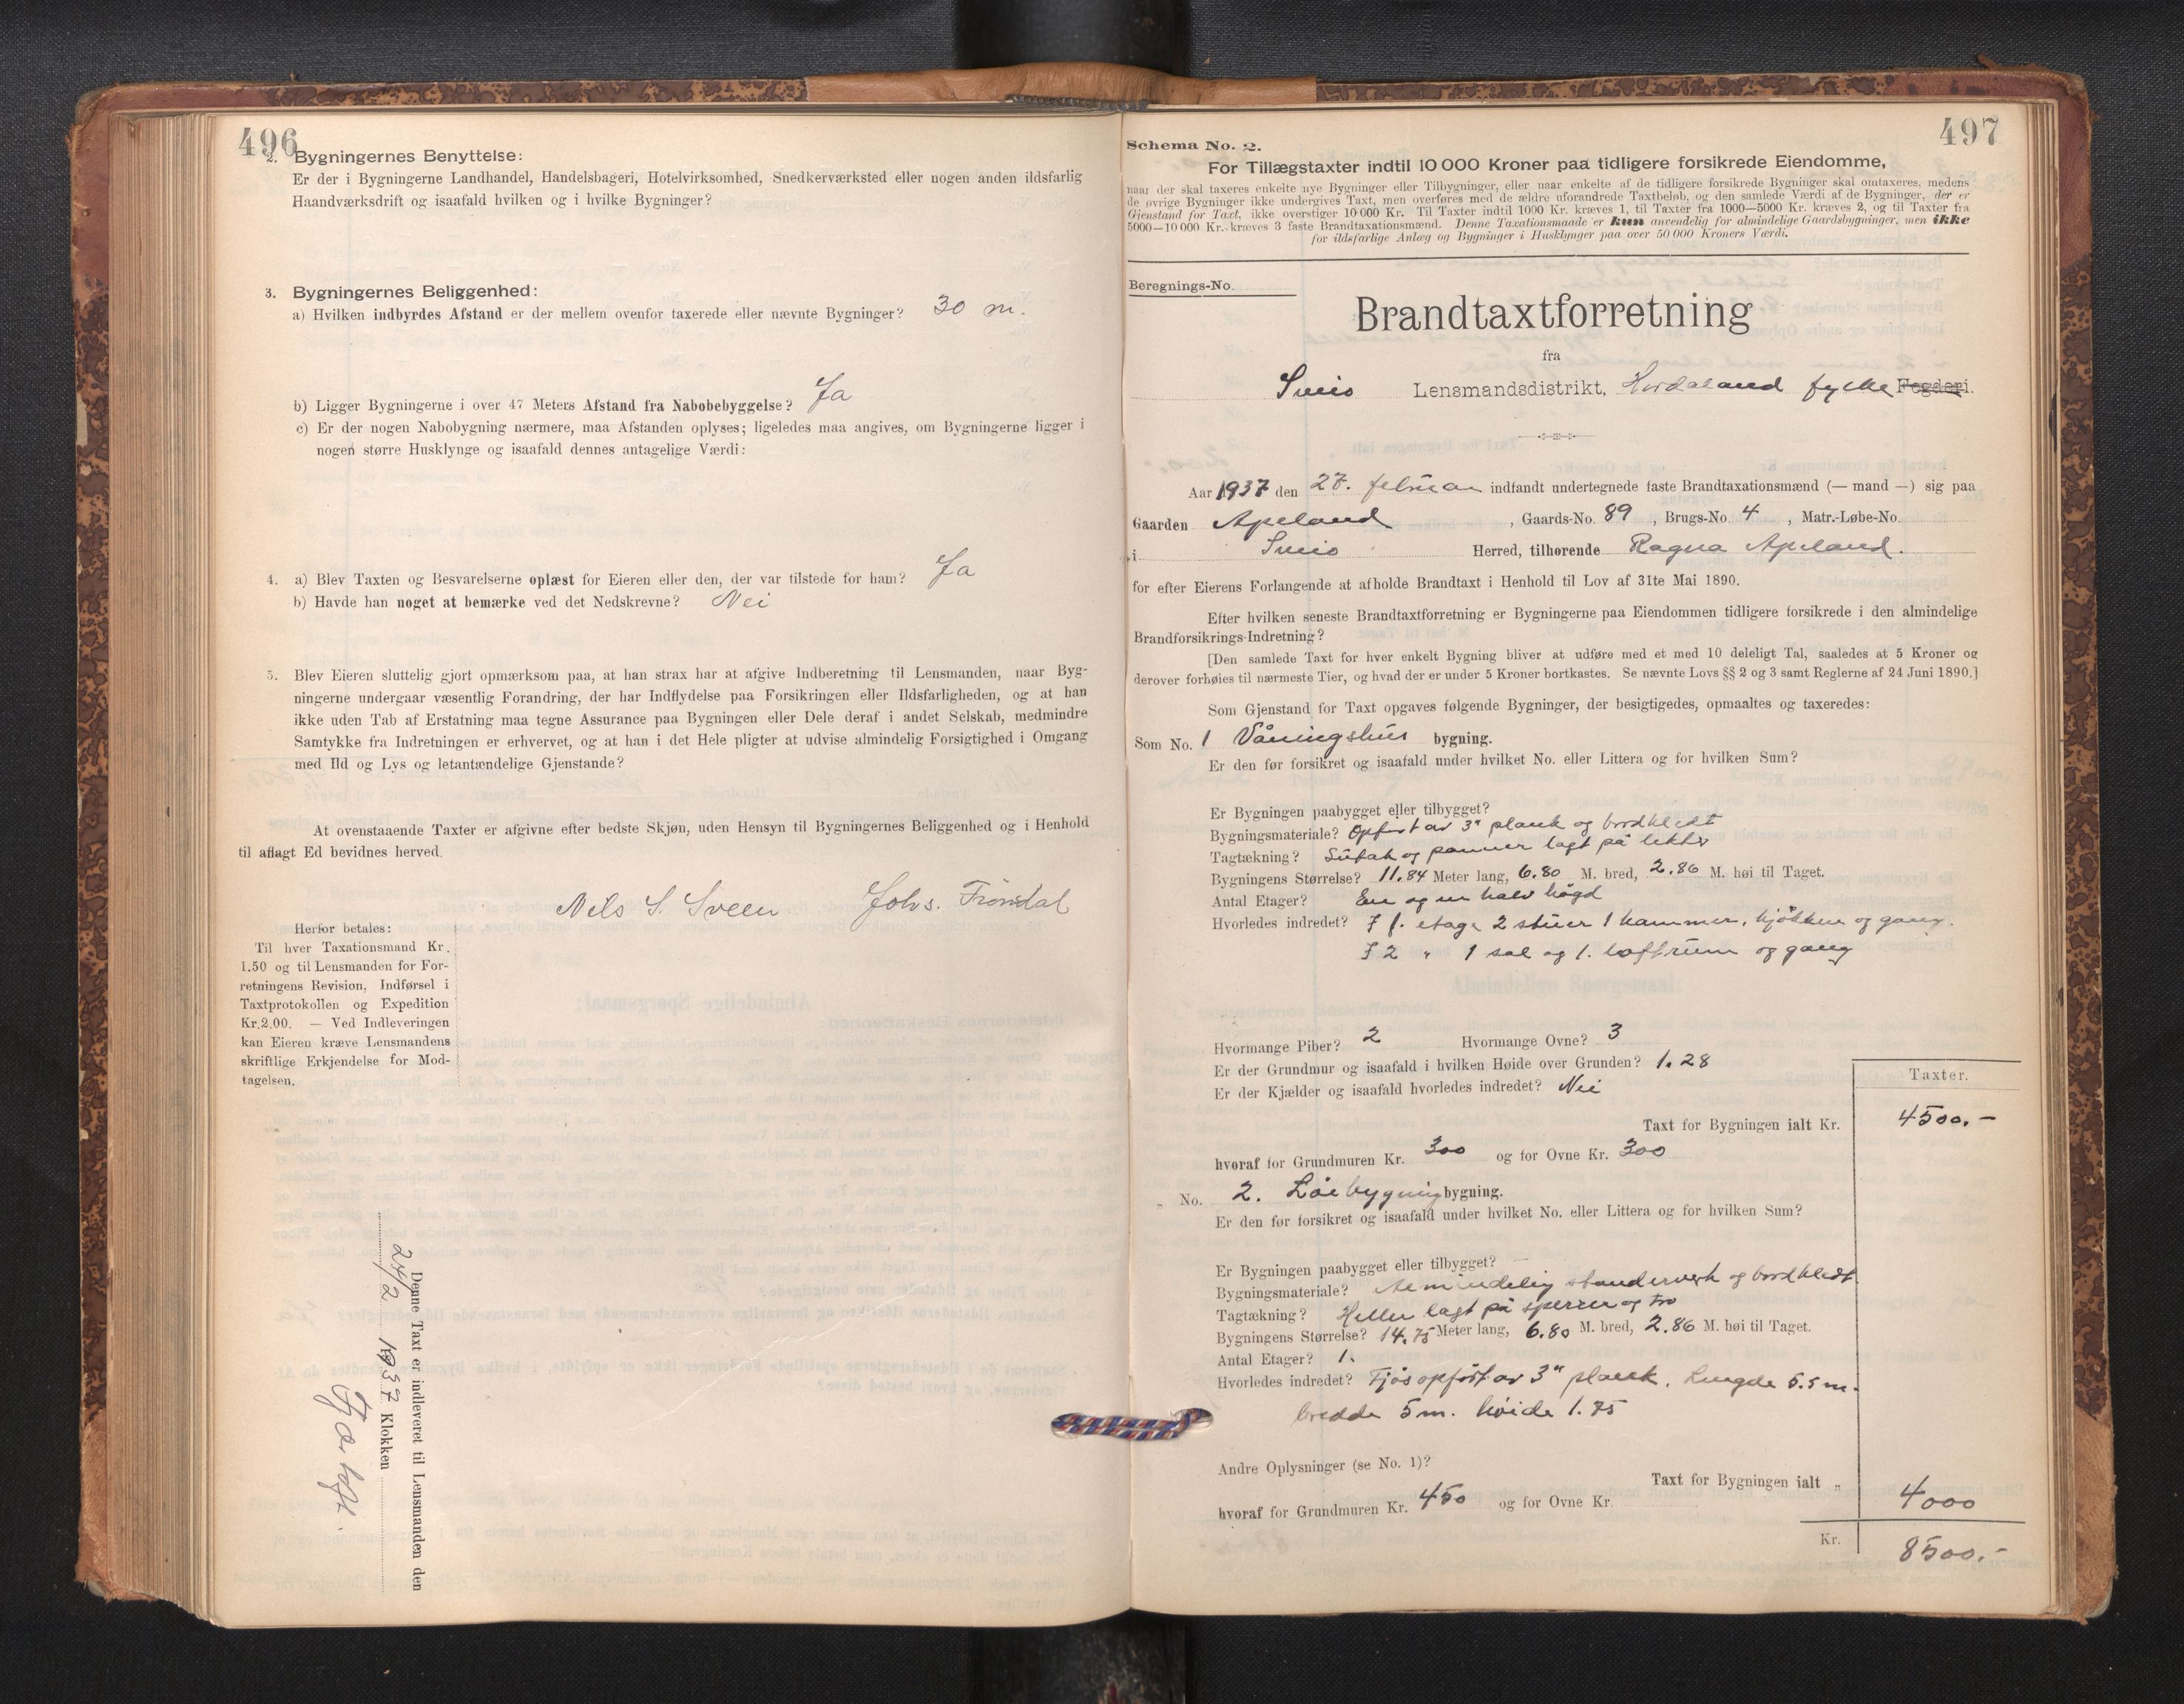 496
2. Bygningernes Benyttelse:
Er der i Bygningerne Landhandel, Handelsbageri, Hotelvirksomhed, Snedkerværksted eller nogen anden ildsfarlig
Haandværksdrift og isaafald hvilken og i hvilke Bygninger?
3. Bygningernes Beliggenhed:
a) Hvilken indbyrdes Afstand er der mellem ovenfor taxerede eller nævnte Bygninger? 30 m.
b) Ligger Bygningerne i over 47 Meters Afstand fra Nabobebyggelse? Ja
c) Er der nogen Nabobygning nærmere, maa Afstanden oplyses; ligeledes maa angives, om Bygningerne ligger i
nogen større Husklynge og isaafald dennes antagelige Værdi:
4. a) Blev Taxten og Besvarelserne oplæst for Eieren eller den, der var tilstede for ham? Ja
b) Havde han noget at bemærke ved det Nedskrevne? Nei
5. Blev Eieren sluttelig gjort opmærksom paa, at han strax har at afgive Indberetning til Lensmanden, naar Byg-
ningerne undergaar væsentlig Forandring, der har Indflydelse paa Forsikringen eller Ildsfarligheden, og at han
ikke uden Tab af Erstatning maa tegne Assurance paa Bygningen eller Dele deraf i andet Selskab, medmindre
Samtykke fra Indretningen er erhvervet, og at han i det Hele pligter at udvise almindelig Forsigtighed i Omgang
med Ild og Lys og letantændelige Gjenstande?
At ovenstaaende Taxter er afgivne efter bedste Skjøn, uden Hensyn til Bygningernes Beliggenhed og i Henhold
til aflagt Ed bevidnes herved.
Nels S. Sveen Johs. Tröndal
Herfor betales:
Til hver Taxationsmand Kr.
1.50 og til Lensmanden for For-
retningens Revision, Indførsel i
Taxtprotokollen og Expedition
Kr. 2.00. — Ved Indleveringen
kan Eieren kræve Lensmandens
skriftlige Erkjendelse for Mod-
tagelsen.
Denne Taxt er indleveret til Lensmanden den
24/2 1937 Klokken
497
Schema No. 2.
For Tillægstaxter indtil 10 000 Kroner paa tidligere forsikrede Eiendomme,
naar der skal taxeres enkelte nye Bygninger eller Tilbygninger, eller naar enkelte af de tidligere forsikrede Bygninger skal omtaxeres, medens
de øvrige Bygninger ikke undergives Taxt, men overføres med de ældre uforandrede Taxtbeløb, og den samlede Værdi af de Bygninger, der er
Gjenstand for Taxt, ikke overstiger 10 000 Kr. Til Taxter indtil 1000 Kr. kræves 1, til Taxter fra 1000—5000 Kr. kræves 2, og til Taxter fra
5000—10 000 Kr. kræves 3 faste Brandtaxationsmænd. Denne Taxationsmaade er kun anvendelig for almindelige Gaardsbygninger, men ikke
for ildsfarlige Anlæg og Bygninger i Husklynger paa over 50 000 Kroners Værdi.
Beregnings-No.
Brandtaxtforretning
fra
Sveio Lensmandsdistrikt, Hordaland fylke Fogderi.
Aar 1937 den 27. februar indfandt undertegnede faste Brandtaxationsmænd (— mand —) sig paa
Gaarden Apeland , Gaards-No. 89 , Brugs-No. 4 , Matr.-Løbe-No.
i Sveio Herred, tilhørende Ragna Apeland.
for efter Eierens Forlangende at afholde Brandtaxt i Henhold til Lov af 31te Mai 1890.
Efter hvilken seneste Brandtaxtforretning er Bygningerne paa Eiendommen tidligere forsikrede i den almindelige
Brandforsikrings-Indretning?
[Den samlede Taxt for hver enkelt Bygning bliver at udføre med et med 10 deleligt Tal, saaledes at 5 Kroner og
derover forhøies til nærmeste Tier, og hvad der er under 5 Kroner bortkastes. Se nævnte Lovs §§ 2 og 3 samt Reglerne af 24 Juni 1890.]
Som Gjenstand for Taxt opgaves følgende Bygninger, der besigtigedes, opmaaltes og taxeredes:
Som No. 1 Våningshus bygning.
Er den før forsikret og isaafald under hvilket No. eller Littera og for hvilken Sum?
Er Bygningen paabygget eller tilbygget?
Bygningsmateriale? Opført av 3" plank og bordkledt
Tagtækning? Sutak og panner lagt på lekter
Bygningens Størrelse? 11.84 Meter lang, 6.80 M. bred, 2.86 M. høi til Taget.
Antal Etager? Een og en halv høgd
Hvorledes indredet? I 1. etage 2 stuer 1 kammer, kjøkken og gang.
I 2 " 1 sal og 1. loftrum og gang
Hvormange Piber? 2 Hvormange Ovne? 3
Er der Grundmur og isaafald i hvilken Høide over Grunden? 1.28
Er der Kjælder og isaafald hvorledes indredet? Nei
Taxter.
Taxt for Bygningen ialt Kr. 4500.-
hvoraf for Grundmuren Kr. 300 og for Ovne Kr. 300
" No. 2. Löebygning bygning.
Er den før forsikret og isaafald under hvilket No. eller Littera og for hvilken Sum?
Er Bygningen paabygget eller tilbygget?
Bygningsmateriale? Almindelig standerverk og bordkledt
Tagtækning? Heller lagt på sperrer og tro
Bygningens Størrelse? 14.75 Meter lang, 6.80 M. bred, 2.86 M. høi til Taget.
Antal Etager? 1.
Hvorledes indredet? Fjøs opført av 3" plank. Lengde 5.5 m.
bredde 5 m. høide 1.75
Andre Oplysninger (se No. 1)?
Taxt for Bygningen ialt " 4000
hvoraf for Grundmuren Kr. 450 og for Ovne Kr.
Kr. 8500.-